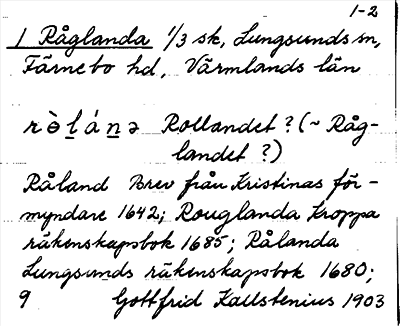 1-2
1 Råglanda 1/3 sk, Lungsunds sn,
Färnebo hd, Värmlands län
rὸⱡánə Rollandet? (~ Råg-
landet ?)
Råland Brev från Kristinas för-
myndare 1642; Rouglanda Kroppa
räkenskapsbok 1685; Rålanda
Lungsunds räkenskapsbok 1680;
9 Gottfrid Kallstenius 1903